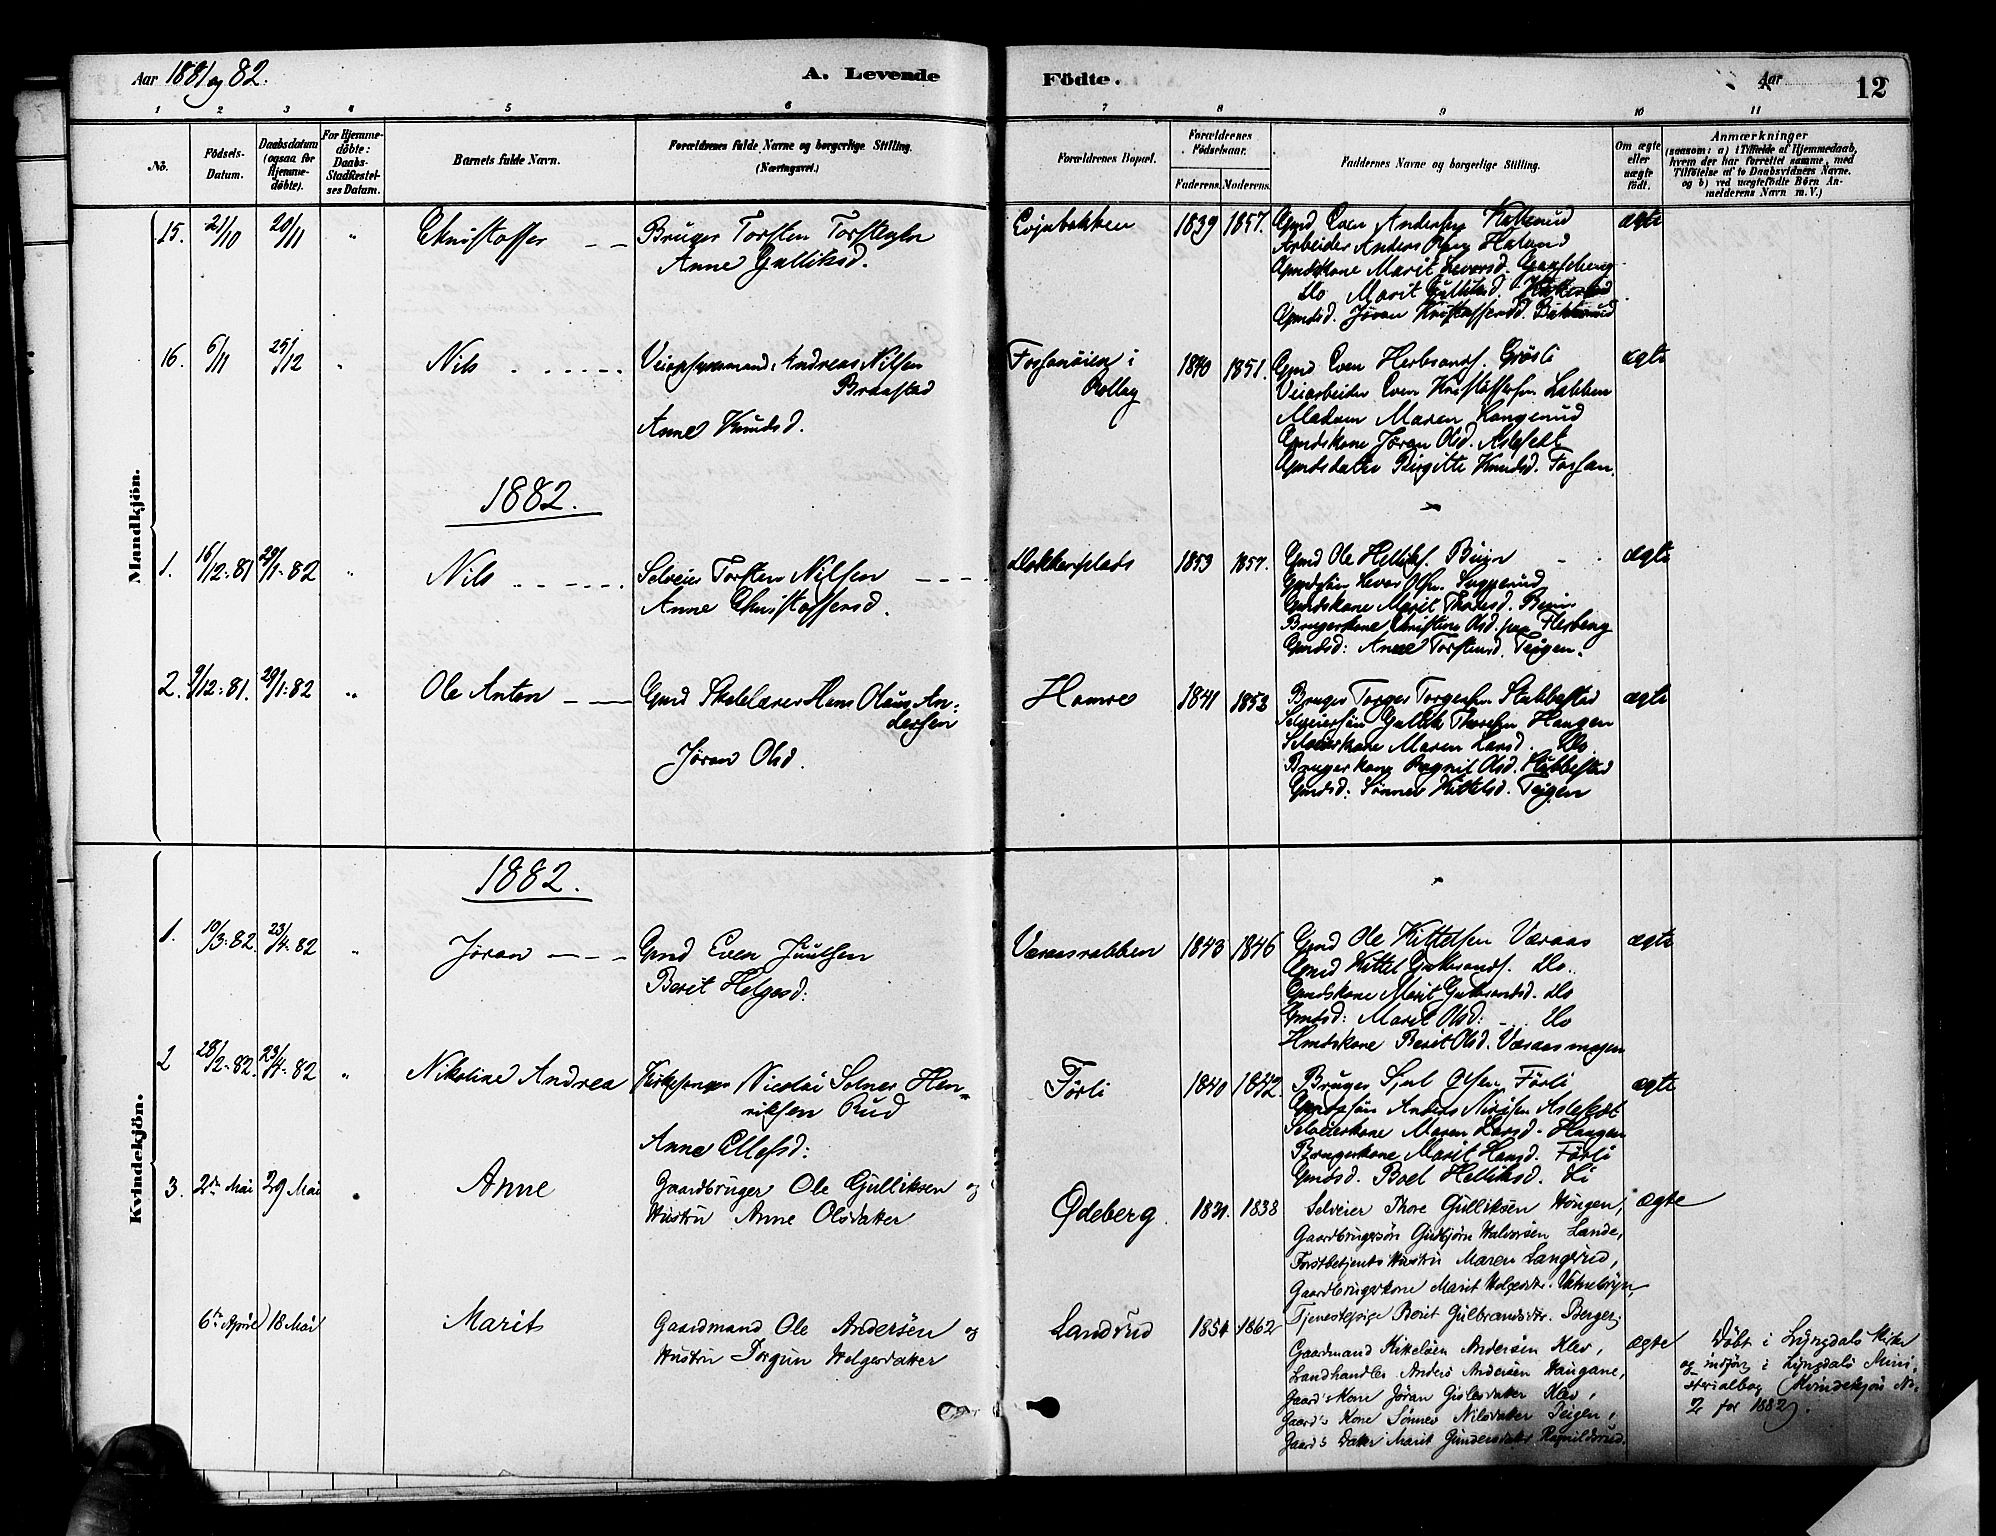 Aar 1881 og 82.
A. Levende Födte.
Aar
12
1 2 3 4 5 6 7 8 9 10 11
No.
Födsels-Datum.
Daabsdatum (ogsaa for Hjemme-döbte).
For Hjemme-döbte: Daabs-Stadfæstel-ses Datum.
Barnets fulde Navn.
Forældrenes fulde Navne og borgerlige Stilling. (Næringsvei.)
Forældrenes Bopæl.
Forældrenes Födselsaar.
Faderens. Moderens.
Faddernes Navne og borgerlige Stilling.
Om ægte eller uægte födt.
Anmærkninger
(saasom: a) i Tilfælde af Hjemmedaab, hvem der har forrettet samme, med Tilföielse af to Daabsvidners Navne. og b) ved uægtefödte Börn An-melderens Navn m. V.)
Mandkjön.
15. 21/10 20/11 " Christoffer
Bruger Torsten Torstensen
Anne Gulliksd.
1839 1857. ægte
Gmd Even Andersen
Arbeider Anders
Gmdskone Marit
Do Marit
Gmdsd. Jøran Kristoffersd.
16. 6/11 25/12 " Nils
Andreas Nilsen
Braastad
Anne Knudsd.
i
Rollag
1840 1851. ægte
Gmd Even Herbrands. Grøsli
Veiarbeider Even Kristoffersen Løkken
Madam Maren Langerud
Gmdskone Jøran Olsd. Aslefet
Gmdsdatter Birgitte Knudsd. Fosfan
1882.
1. 16/12-81 29/1-82 " Nils
Selveier Torsten Nilsen
Anne Christoffersd.
1853 1857. ægte
Gmd Ole Helliks.
Gmdskone Marit
Brugerkone Christine Olsd.
Gmdsd: Anne Torstensd. Teigen.
2. 9/12-81. 29/1-82 " Ole Anton
Gmd Skolelærer Hans Olaus An-
dersen
Jøran Olsd.
Hamre
1841 1853 ægte
Bruger Torger Torgersen Stubbestad
Selveiersøn Gullik Thoresen Haugen
Selveierkone Maren Larsd. Do.
Brugerkone Ragnil Olsd. Stubbestad
Gmdsd: Sønnev Kittelsd. Teigen
Kvindekjön.
1882.
1. 10/3-82. 23/4-82 " Jøran
Gmd Even Juulsen
Berit Helgesd:
Væraasnabben 1843 1846 ægte
Gmd Ole Kittelsen Væraas
Gmd Kittel Gulbrands. Do.
Gmdskone Marit Gulbrandsd. Do
Gmdsd: Marit Olsd: Do
Hmdskone Berit Olsd. Væraasmogen
2 28/2-82. 23/4-82 " Nikoline Andrea
Kirkesanger Nicolai Solner Hen-
riksen Rud
Anne Ellefsd:
Førli 1840 1842. ægte
Bruger Sjul Olsen Førli
Gmdssøn Anders Nirisen Aslefet
Selveierkone Maren Larsd. Haugen
Brugerkone Marit Hansd. Førli
Gmdsd. Boel Helliksd. Li
3. 2den Mai 29 Mai Anne
Gaardbruger Ole Gulliksen og
Hustru Anne Olsdatter
Ødeberg. 1831. 1838 ægte
Selveier Thore Gulliksen Haugen,
Gaardbrugersøn Gudbjørn Halvorsen Lande,
Forstbetjents Hustru Maren Langerud,
Gaardbrugerkone Marit Helgesdtr.
Tjenestepige Berit Gulbrandsdtr. Berget.
6te April 18 Mai Marit
Gaardmand Ole Andersen og
Hustru Torgun Helgesdatter
Landrud 1854 1862 ægte
Gaardmand Mikkelsen Andersen Klev,
Landhandler Anders Andersen Haugane,
Gaard's Kone Jøran Gislesdatter Klev,
Gaard's Kone Sønnev Nilsdatter Teigen,
Gaard's Datter Marit Gundersdatter Ragnildsrud.
Døbt i Lyngdals Kirke
og indført i Lyngdals Mini-
sterialbog Kvindekjøn No
2 for 1882.